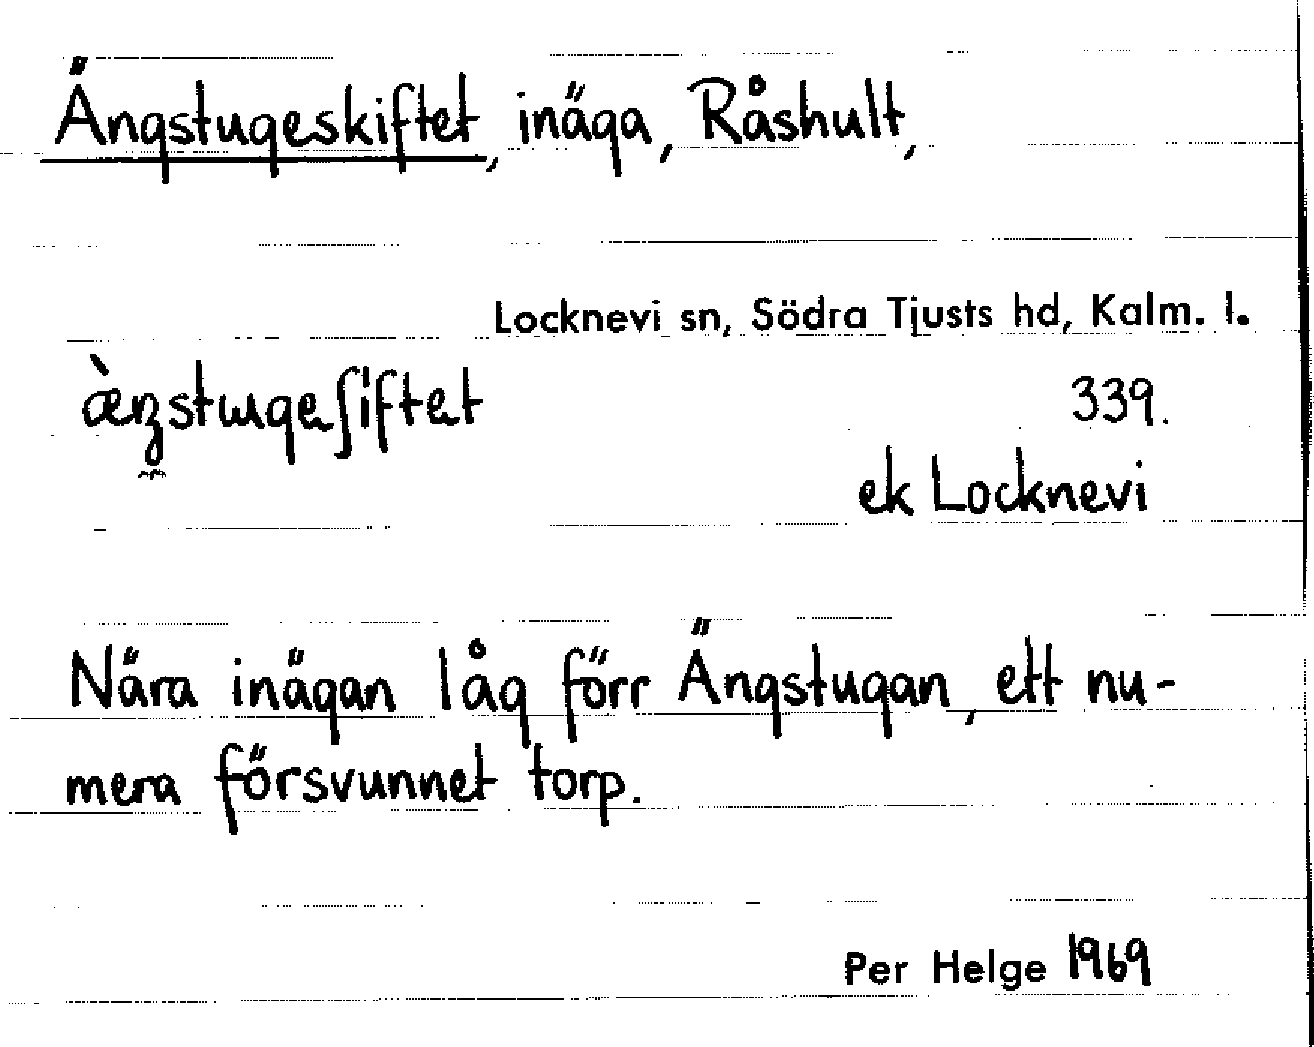 Ängstugeskiftet, inäga, Råshult,
Locknevi sn, Södra Tjusts hd, Kalm. l.
339.
ek Locknevi
Nära inägan låg förr Ängstugan, ett nu-
mera försvunnet torp.
Per Helge 1969